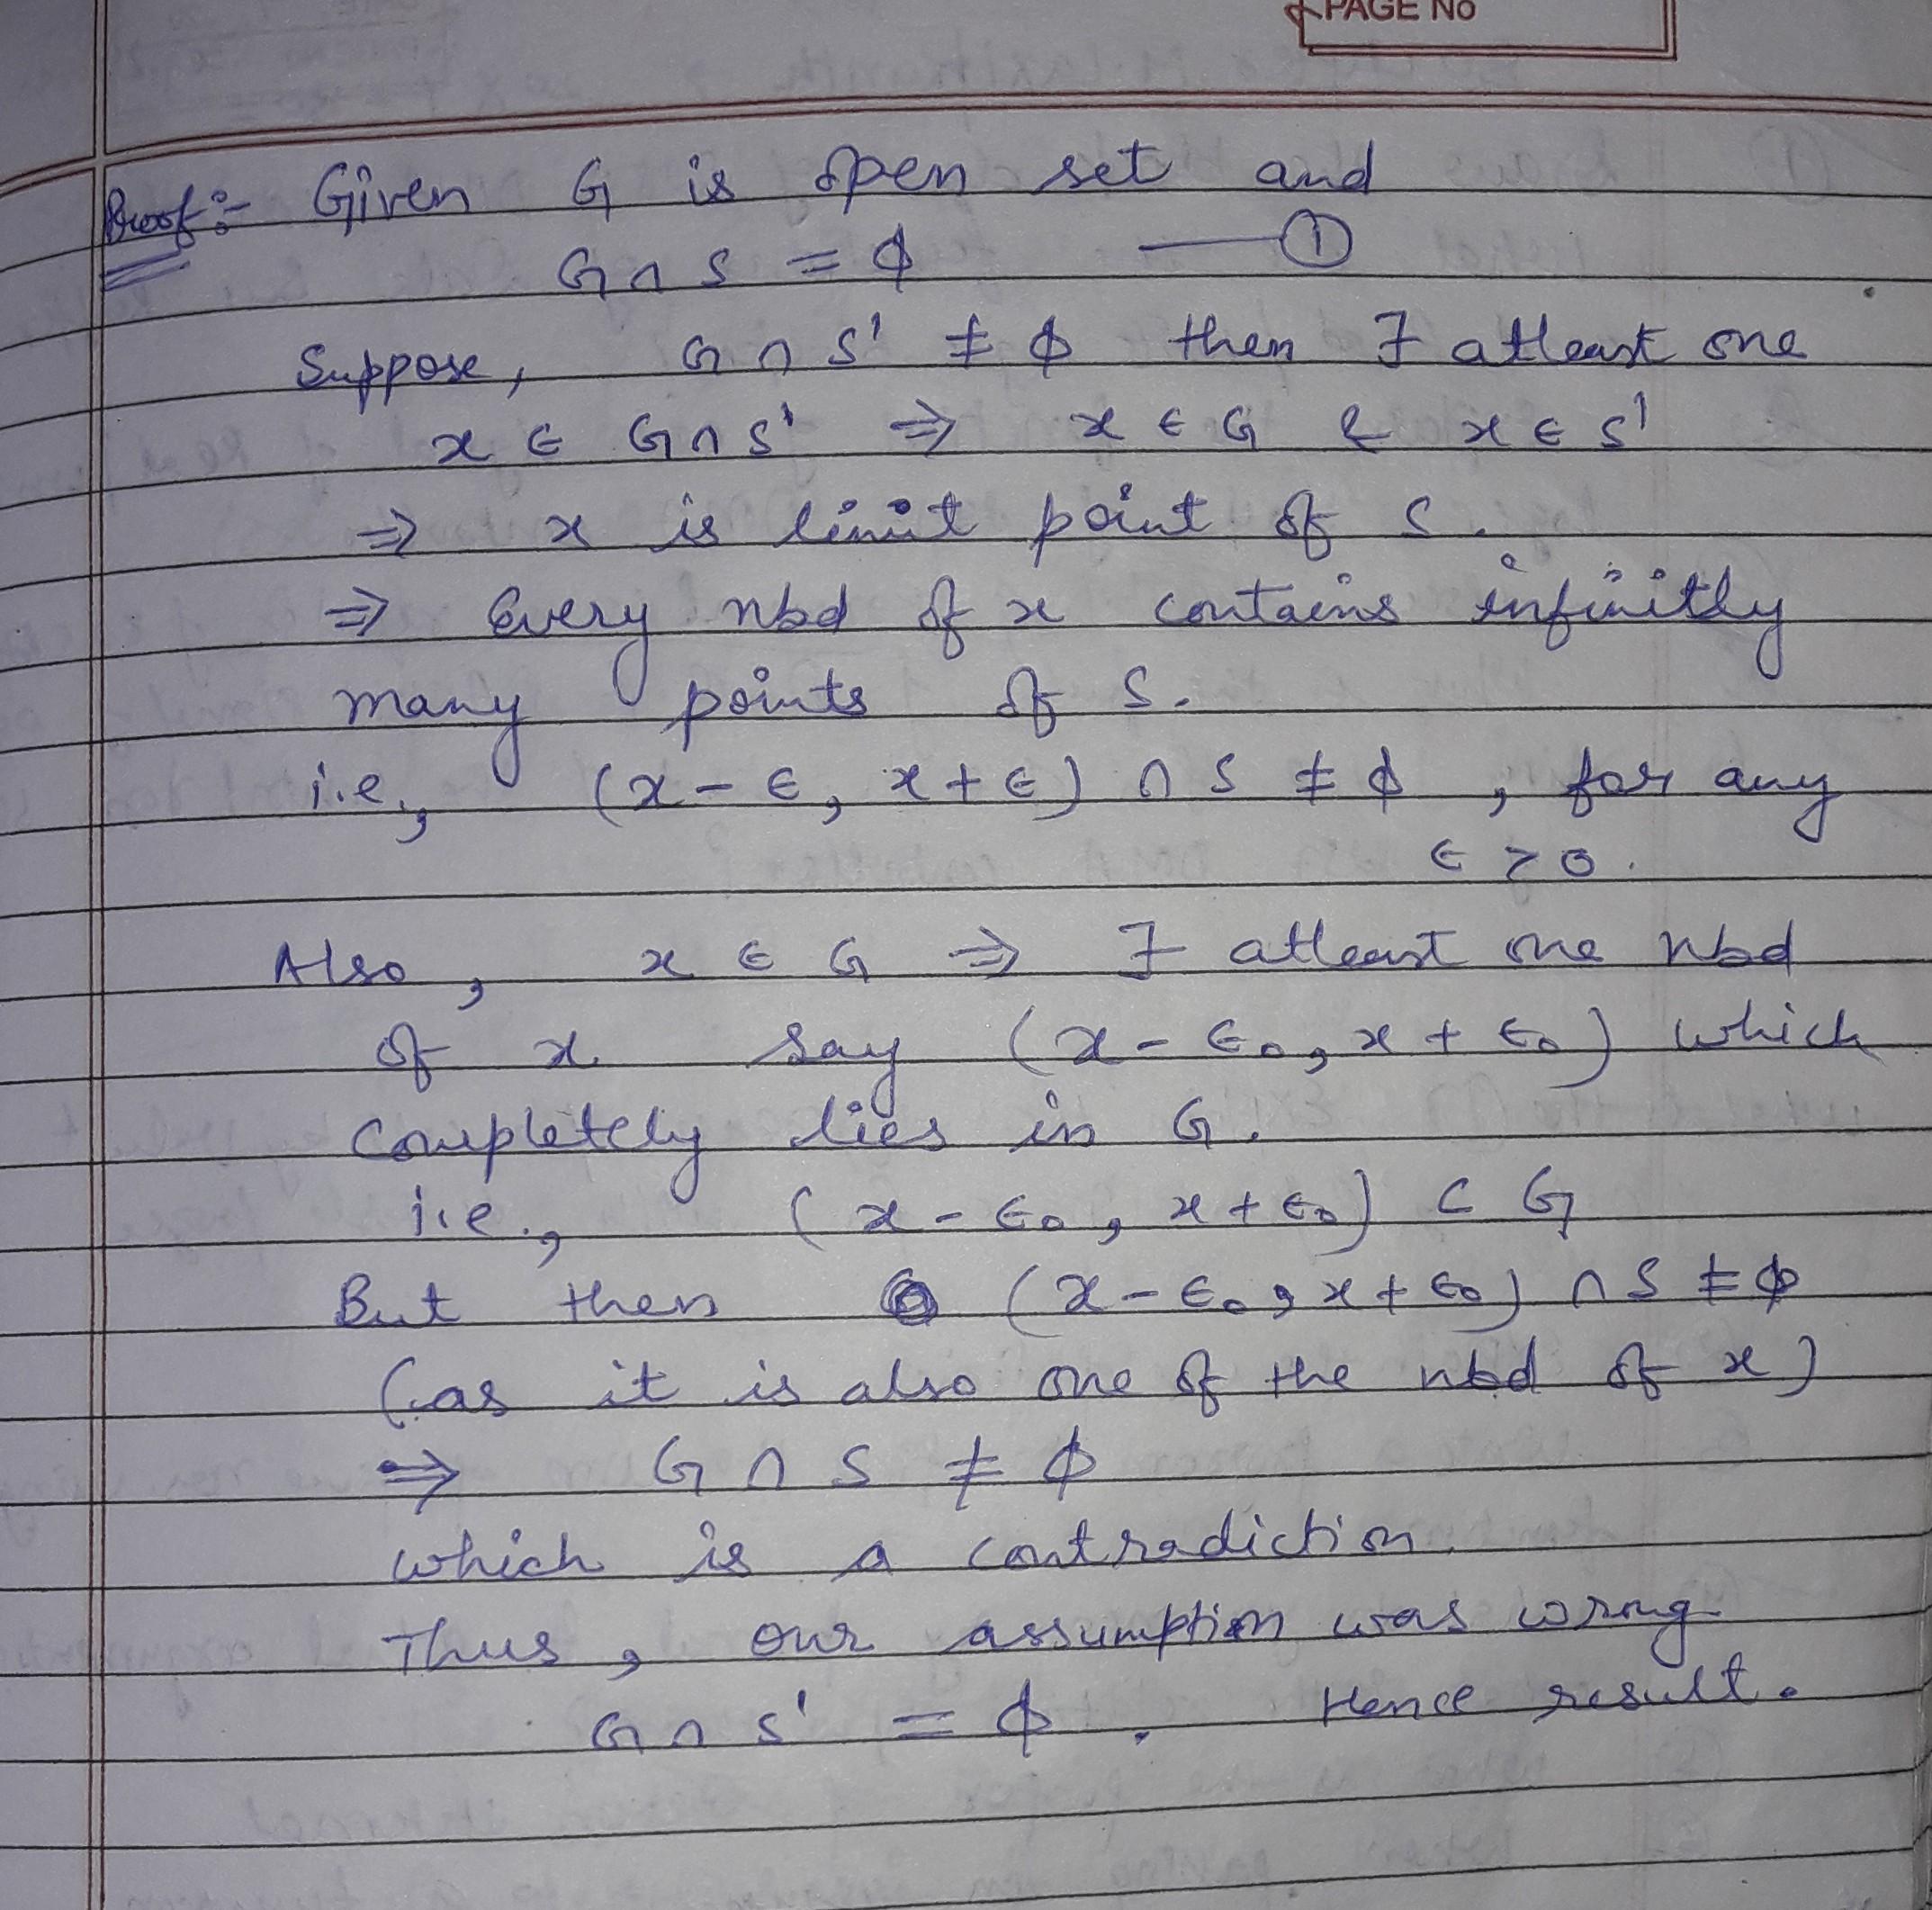 PAGE No
Proof:- Given G is open set and
G ∩ S = ϕ —— ①
Suppose, G ∩ S' ≠ ϕ then ∃ atleast one
x ∈ G ∩ S' ⇒ x ∈ G & x ∈ S'
⇒ x is limit point of S.
⇒ Every nbd of x contains infinitly
many points of S.
i.e., (x - ϵ, x + ϵ) ∩ S ≠ ϕ, for any
ϵ > 0.
Also, x ∈ G ⇒ ∃ atleast one nbd
of x say (x - ϵ₀, x + ϵ₀) which
completely lies in G.
i.e., (x - ϵ₀, x + ϵ₀) ⊂ G
But then (x - ϵ₀, x + ϵ₀) ∩ S ≠ ϕ
(as it is also one of the nbd of x)
⇒ G ∩ S ≠ ϕ
which is a contradiction.
Thus, our assumption was wrong
G ∩ S' = ϕ. Hence result.